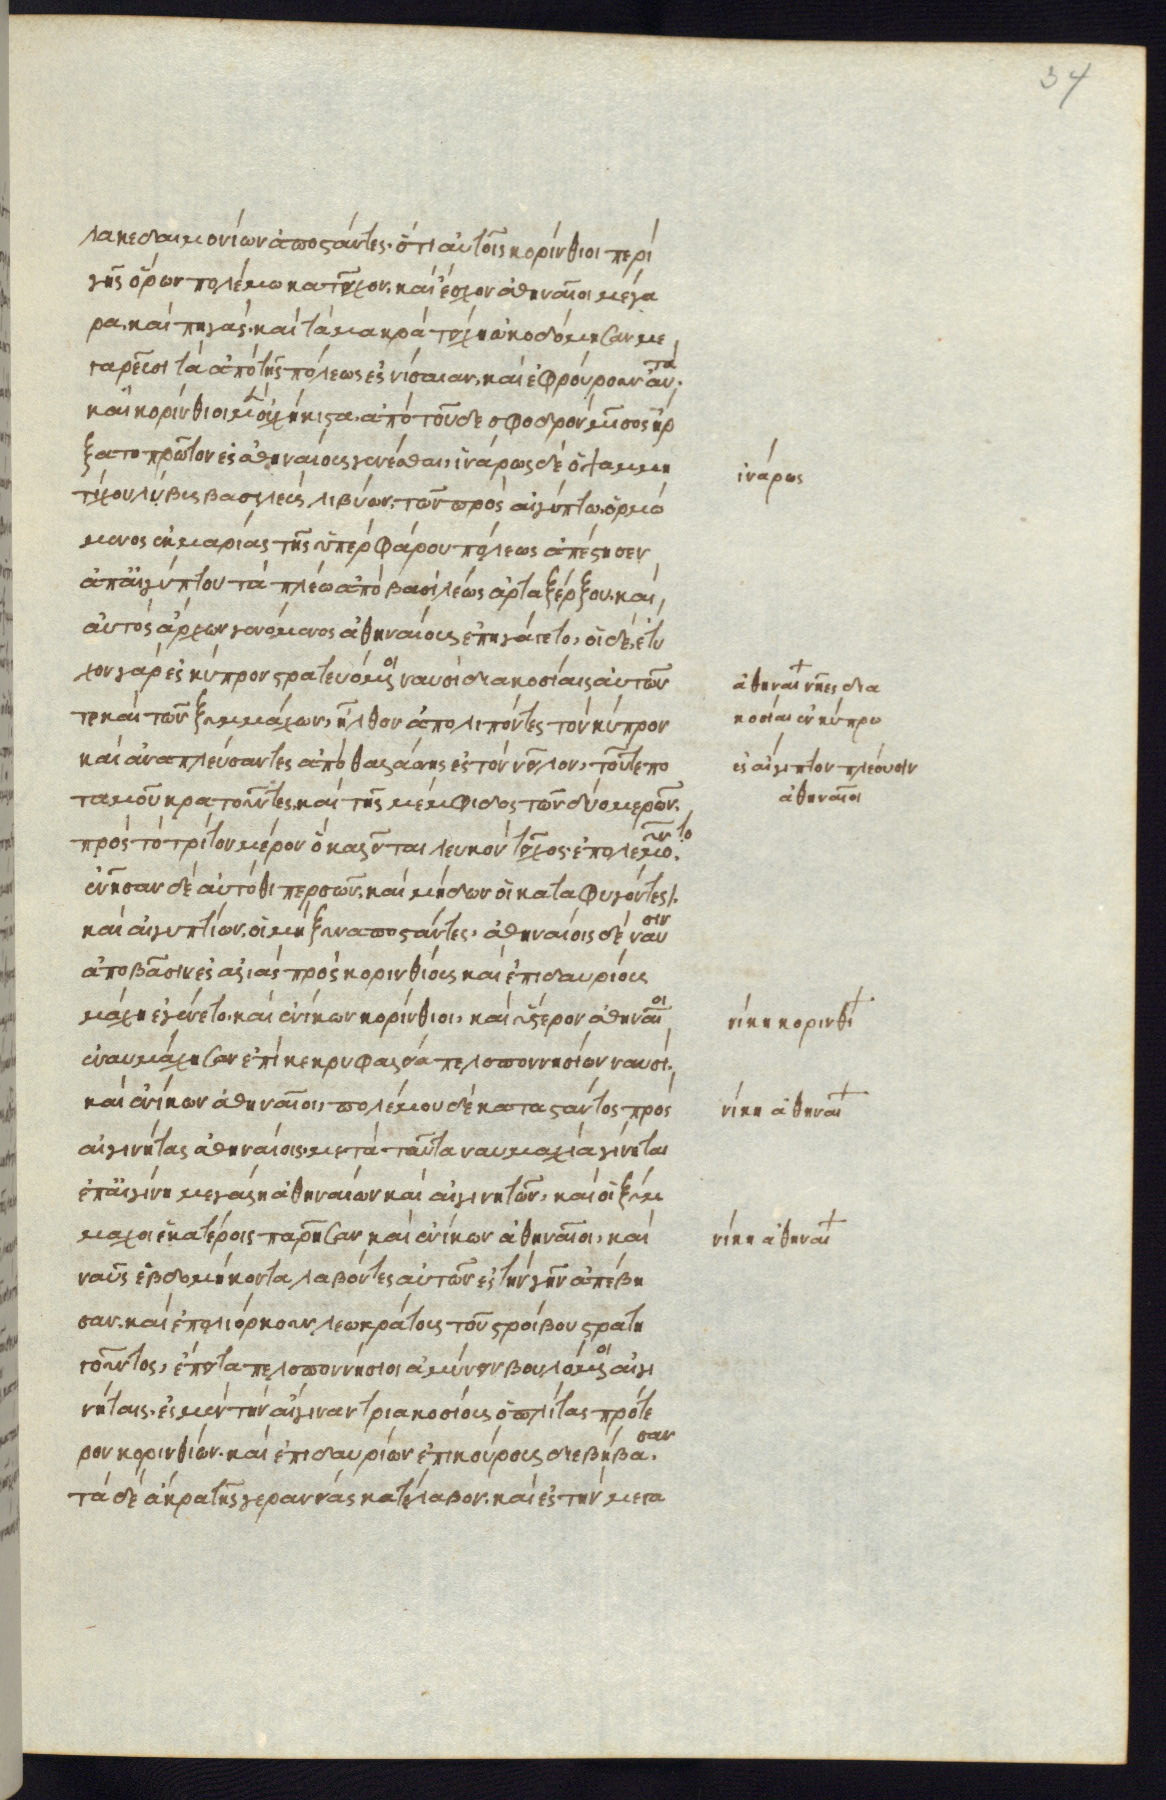 34
λακεδαιμονίων ἀποστάντες· ὅτι αὐτοῖς κορίνθιοι περὶ
γῆς ὅρων πολέμω κατεῖχον. καὶ ἔσχον ἀθηναῖοι μέγα
ρα. καὶ πηγάς. καὶ τὰ μακρὰ τείχη ὠκοδόμησαν με
γαρεῦσι τὰ ἀπὸ τῆς πόλεως ἐς νίσαιαν. καὶ ἐφρούρουν αὐτά.
καὶ κορινθίοις μὲν οὐχ ἥκιστα. ἀπὸ τοῦδε σφοδρὸν μῖσος ἤρ
ξατο πρῶτον ἐς ἀθηναίους γενέσθαι, ἰνάρως δὲ ὁ ψαμμη
τίχου λίβυς βασιλεὺς λιβύων. τῶν πρὸς αἰγύπτω. ὁρμώ
μενος ἐκ μαρίας τῆς ὑπὲρ φάρου πόλεως ἀπέστησεν
ἀπ' αἰγύπτου τὰ πλέω ἀπὸ βασιλέως ἀρταξέρξου. καὶ
αὐτὸς ἄρχων γενόμενος ἀθηναίους ἐπηγάγετο, οἱ δὲ, ἔτυ
χον γὰρ ἐς κύπρον στρατευόμενοι ναυσὶ διακοσίαις αὐτῶν
τε καὶ τῶν ξυμμάχων, ἦλθον ἀπολιπόντες τὸν κύπρον
καὶ ἀναπλεύσαντες ἀπὸ θαλάσσης ἐς τὸν νεῖλον, τοῦ τε πο
ταμοῦ κρατοῦντες. καὶ τῆς μέμφιδος τῶν δύο μερῶν.
πρὸς τὸ τρίτον μέρος ὃ καλεῖται λευκὸν τεῖχος. ἐπολέμουν το.
ἐνῆσαν δὲ αὐτόθι περσῶν. καὶ μήδων οἱ καταφυγόντες.
καὶ αἰγυπτίων. οἱ μὴ ξυναποστάντες. ἀθηναίοις δὲ ναυσιν
ἀποβᾶσιν ἐς ἁλιὰς πρὸς κορινθίους καὶ ἐπιδαυρίους
μάχη ἐγένετο. καὶ ἐνίκων κορίνθιοι, καὶ ὕστερον ἀθηναῖοι
ἐναυμάχησαν ἐπὶ κεκρυφαλεία πελοποννησίων ναυσί.
καὶ ἐνίκων ἀθηναῖοι, πολέμου δὲ καταστάντος πρὸς
αἰγινήτας ἀθηναίοις. μετὰ ταῦτα ναυμαχία γίνεται
ἐπ' αἰγίνη μεγάλη ἀθηναίων καὶ αἰγινητῶν, καὶ οἱ ξύμ
μαχοι ἑκατέροις παρῆσαν καὶ ἐνίκων ἀθηναῖοι, καὶ
ναῦς ἑβδομήκοντα λαβόντες αὐτῶν ἐς τὴν γῆν ἀπέβη
σαν. καὶ ἐπολιόρκουν λεωκράτους τοῦ στροίβου στρατη
γοῦντος, ἔπειτα πελοποννήσιοι ἀμύνειν βουλόμενοι αἰγι
νήταις. ἐς μὲν τὴν αἴγιναν τριακοσίους ὁπλίτας πρότε
ρον κορινθίων. καὶ ἐπιδαυρίων ἐπικούρους διεβίβασαν.
τὰ δὲ ἄκρα τῆς γερανείας κατέλαβον. καὶ ἐς τὴν μεγα
ἰνάρως
ἀθηναι νῆες δια
κοσίαι ἐν κύπρω
ἐς αἴγυπτον πλέουσιν
ἀθηναῖοι
νίκη κορινθι
νίκη ἀθηναι
νίκη ἀθηναι